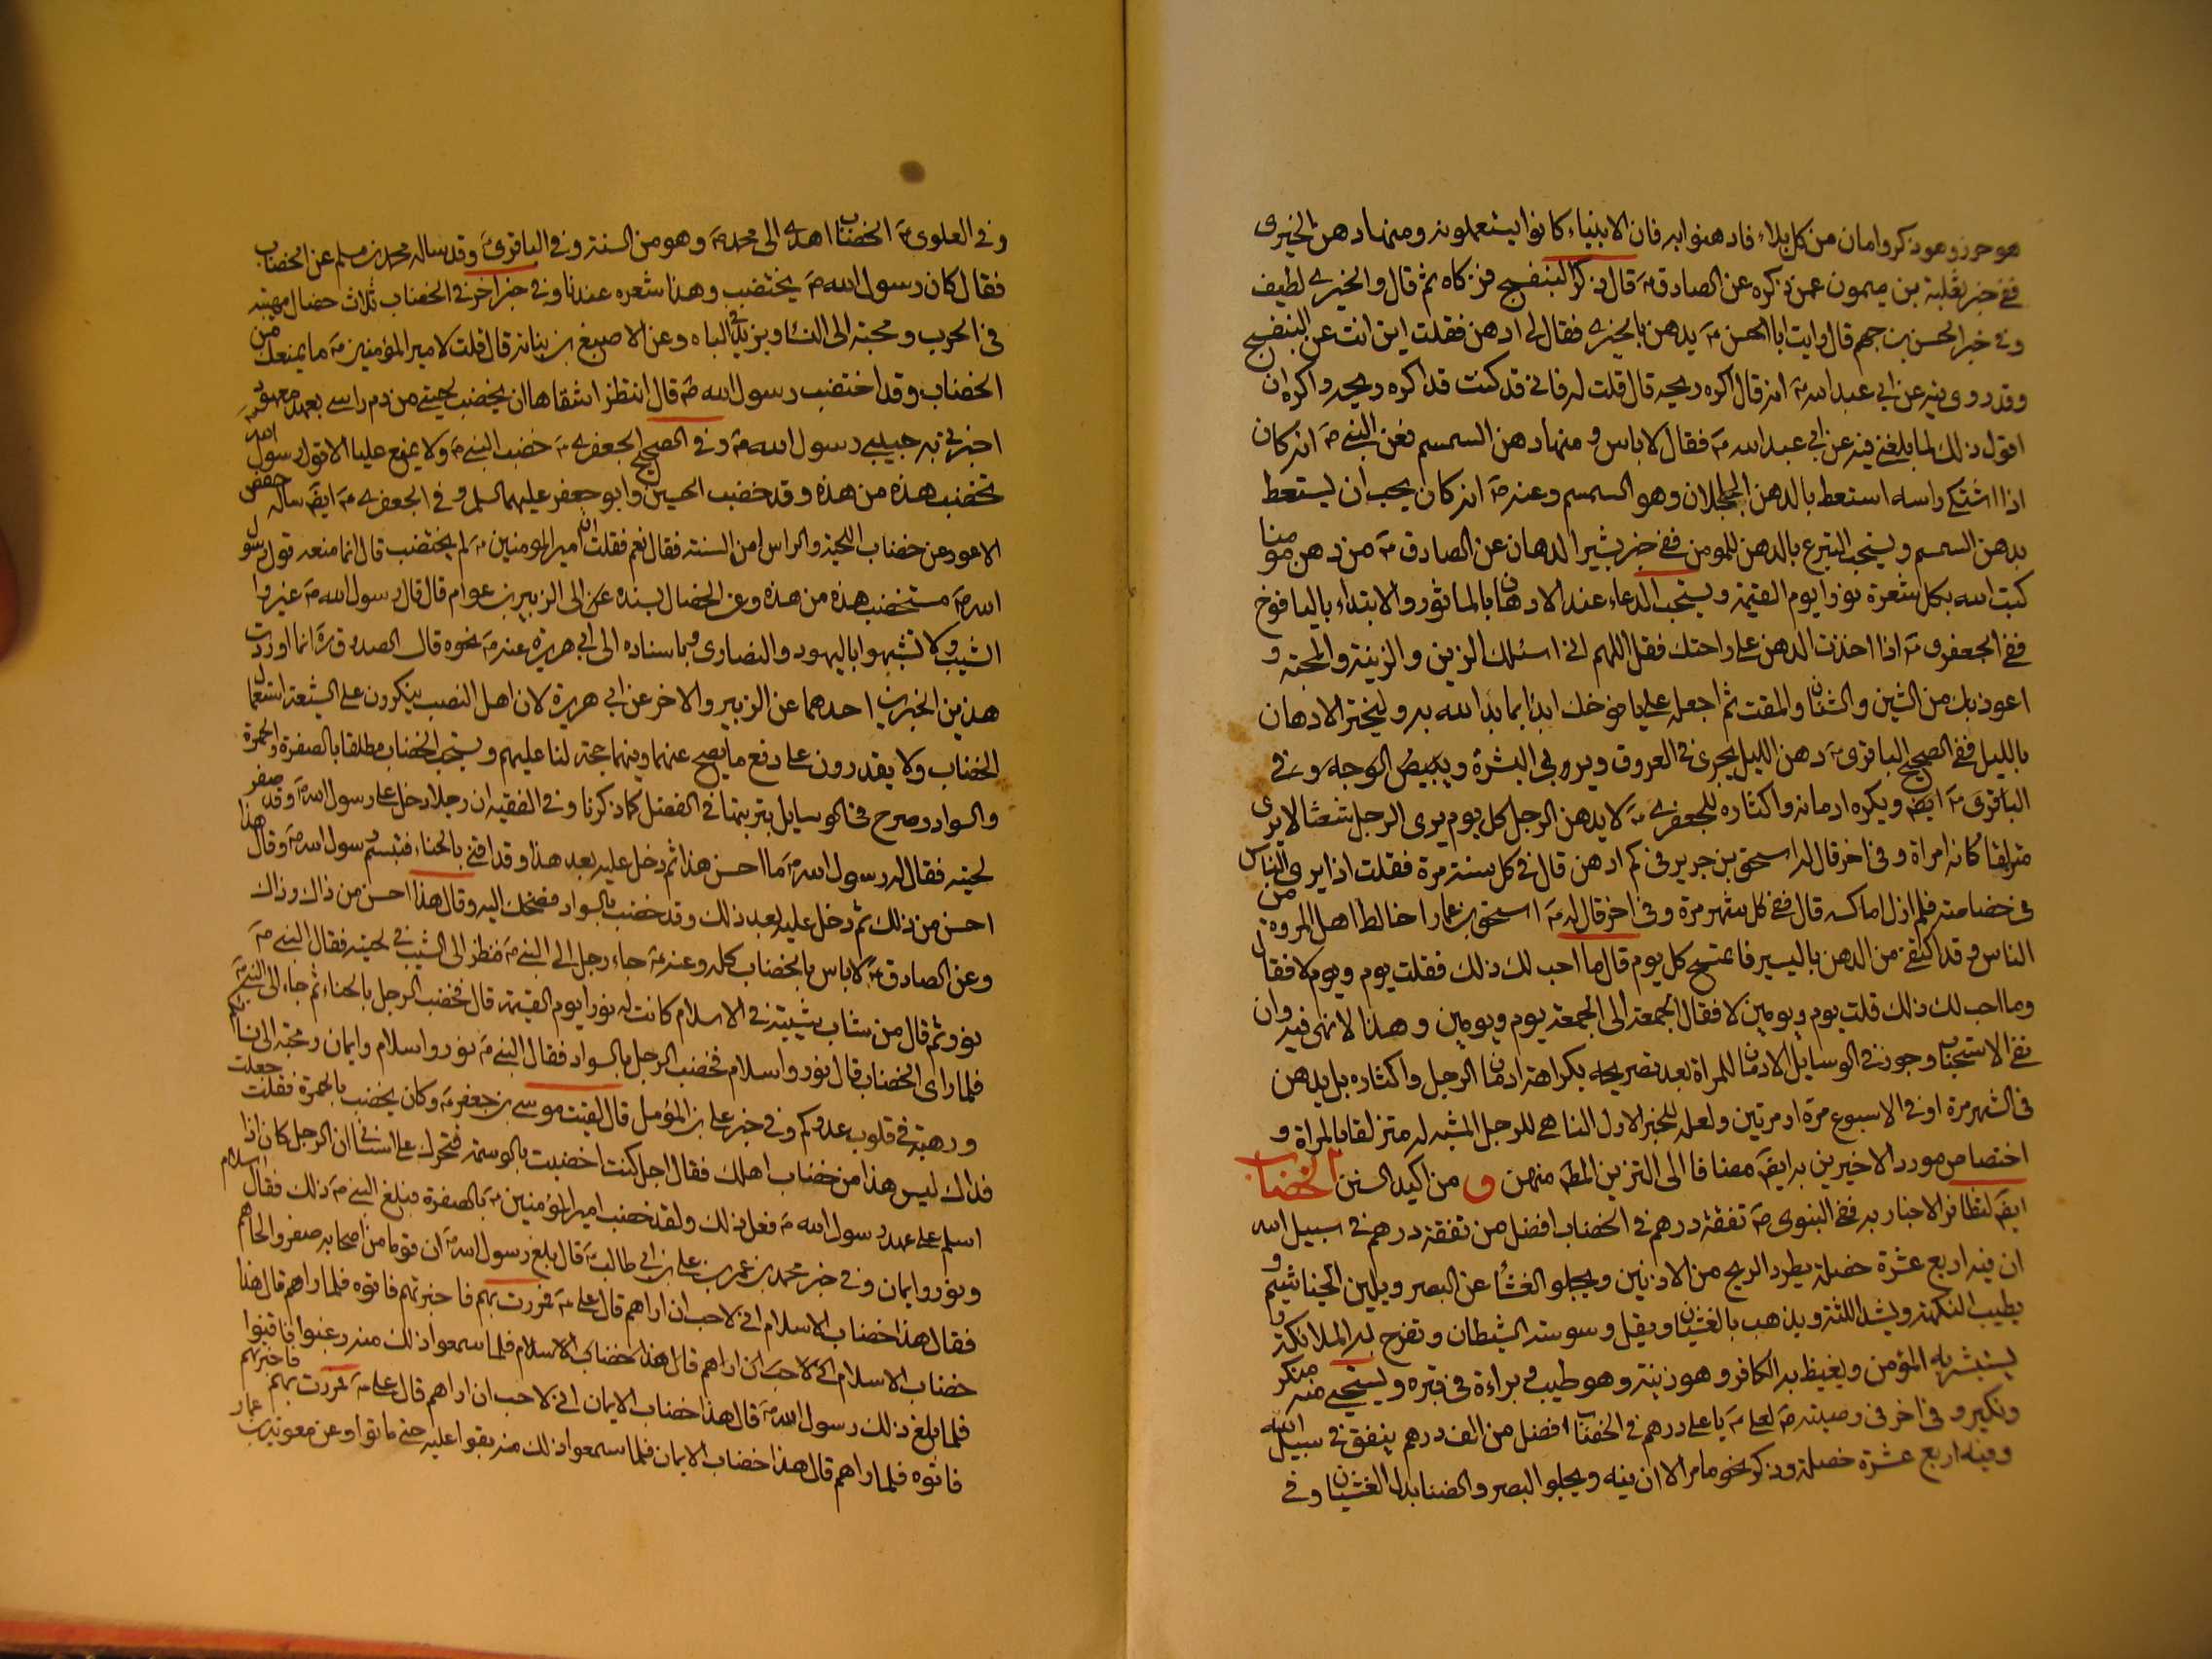 هو حرز وهو ذكر وامان من كل بلاء فادهنوا به فان الانبياء كانوا يستعملونه ومنها دهن الخيرى
ففى خبر ثعلبة بن ميمون عمن ذكره عن الصادق ع قال ذكر البنفسج فزكاه ثم قال والخيرى لطيف
وفى خبر الحسن بن جهم قال رايت ابا الحسن ع يدهن بالخيرى فقال لى ادهن فقلت اين انت عن البنفسج
وقد روى فيه عن ابى عبد الله ع انه قال اكره ريحه قال قلت له فانى قد كنت قد اكره ريحه واكره ان
اقول ذلك لما بلغنى فيه عن ابى عبد الله ع فقال لا باس و منها دهن السمسم فعن النبى ص انه كان
اذا اشتكى راسه استعط بالدهن الجلجلان وهو السمسم وعنه ص انه كان يحب ان يستعط
بدهن السمسم ويستحب التبرع بالدهن للمومن ففى خبر بشير الدهان عن الصادق ع من دهن مومنا
كتب الله بكل شعرة نورا يوم القيمة ويستحب الدعاء عند الادهان بالماثور والابتداء باليافوخ
ففى الجعفرى ع اذا اخذت الدهن على راحتك فقل اللهم انى اسئلك الزين والزينة والمحبة و
اعوذ بك من الشين والشنان والمقت ثم اجعله على يافوخك ابدا بما بدا الله به وليختر الادهان
بالليل ففى الصحيح الباقرى ع دهن الليل يجرى فى العروق ويروى البشرة ويبيض الوجه وفى
الباقرى ع ايضه ويكره ادمانه واكثاره للجعفرى ع لا يدهن الرجل كل يوم يرى الرجل شعثا لا يرى
متزلقا كانه امراة وفى اخر قال له اسحق بن جرير فى كم ادهن قال فى كل سنة مرة فقلت اذا يرى الناس
فى خصاصة فلم ازل اماكسه قال ففى كل شهر مرة وفى اخر قال له ع اسحق بن عمار اخالط اهل المروة من
الناس وقد اكتفى من الدهن باليسير فاتمسح كل يوم قال ما احب لك ذلك فقلت يوم ويوم لا فقال
وما احب لك ذلك قلت يوم ويومين لا فقال الجمعة الى الجمعة يوم ويومين وهذا لانهى فيه وان
نفى الاستحباب وجوز فى الوسايل الادمان للمراة بعد تصريحه بكراهة ادمان الرجل واكثاره بل يدهن
فى الشهر مرة او فى الاسبوع مرة او مرتين ولعله للخبر الاول الناهى للرجل المشبه له متزلقا بالمراة و
اختصاص مورد الاخيرين به ايضه مضافا الى التزين المطه منهن و من اكيد السنن الخضاب
ايضه لتظافر الاخبار به ففى النبوى ص نفقة درهم فى الخضاب افضل من نفقة درهم فى سبيل الله
ان فيه اربع عشرة خصلة يطرد الريح من الاذنين ويجلو الغشا عن البصر ويلين الخياشيم و
يطيب النكهة ويشد اللثة ويذهب بالغشيان ويقل وسوسة الشيطان وتفرح به الملائكة و
يستبشر به المؤمن ويغيظ به الكافر وهو زينة وهو طيب و براءة فى قبره ويستحيى منه منكر
ونكير و فى اخر فى وصيته ص لعلى ع يا على درهم فى الخضاب افضل من الف درهم ينفق فى سبيل الله
وفيه اربع عشرة خصلة وذكر نحو ما مر الا ان فيه ويجلو البصر والضنا بدل الغشيان وفى
وفى العلوى ع الخضاب اهدى الى محمد ص وهو من السنة وفى الباقرى ع وقد ساله محمد بن مسلم عن الخضاب
فقال كان رسول الله ص يختضب وهذا شعره عندنا وفى خبر اخر فى الخضاب ثلاث خصال مهيبة
فى الحرب ومحبة الى النساء ويزيد فى الباه وعن الاصبغ بن نباتة قال قلت لامير المؤمنين ع ما يمنعك من
الخضاب وقد اختضب رسول الله ص قال انتظر اشقاها ان يخضب لحيتى من دم راسى بعهد معهود
اخبرنى به حبيبى رسول الله ص وفى الصحيح الجعفرى ع خضب النبى ص ولا يمنع عليا الا قول رسول الله
تخضب هذه من هذه وقد خضب الحسين وابو جعفر عليهما السلم و فى الجعفرى ع ايضه ساله حفص
الاعور عن خضاب اللحية والراس امن السنة فقال نعم فقلت ان امير المومنين ع لم يختضب قال انما منعه قول رسول
الله ص ستخضب هذه من هذه وعن الخصال بسنده عن الى الزبير بن عوام قال قال رسول الله ص غيروا
الشيب ولا تشبهوا باليهود والنصارى وباسناده الى ابى هريرة عنه ص نحوه قال الصدوق ره انما اوردت
هذين الخبرين احدهما عن الزبير والاخر عن ابى هريرة لان اهل النصب ينكرون على الشيعة استعمال
الخضاب ولا يقدرون على دفع ما يصح عنهما وفيهما حجة لنا عليهم ويستحب الخضاب مطلقا بالصفرة والحمرة
والسواد وصرح فى الوسايل بترتبها فى الفضل كما ذكرنا وفى الفقيه ان رجلا دخل على رسول الله ص وقد صفر
لحيته فقال له رسول الله ص ما احسن هذا ثم دخل عليه بعد هذا وقد اقنى بالحناء فتبسم رسول الله ص وقال هذا
احسن من ذلك ثم دخل عليه بعد ذلك وقد خضب بالسواد فضحك اليه وقال هذا احسن من ذاك وذاك
وعن الصادق ع لا باس بالخضاب كله وعنه ع جاء رجل الى النبى ص فنظر الى الشيب فى لحيته فقال النبى ص
نور ثم قال من شاب شيبة فى الاسلام كانت له نورا يوم القيمة قال فخضب الرجل بالحناء ثم جاء الى النبى ص
فلما راى الخضاب قال نور واسلام فخضب الرجل بالسواد فقال النبى ص نور واسلام وايمان ومحبة الى نسائكم
ورهبة فى قلوب عدوكم وفى خبر على بن المؤمل قال لقيت موسى بن جعفر ع وكان يخضب بالحمرة فقلت جعلت
فداك ليس هذا من خضاب اهلك فقال اجل كنت اخضبت بالوسمة فتحرك على اسنانى ان الرجل كان اذا
اسلم على عهد رسول الله ص فعل ذلك ولقد خضب امير المؤمنين ع بالصفرة فبلغ النبى ص ذلك فقال اسلام
ونور وايمان وفى خبر محمد بن عمر بن على بن ابى طالب ع قال بلغ رسول الله ص ان قوما من اصحابه صفروا لحاهم
فقال هذا خضاب الاسلام انى لاحب ان اراهم قال على ع فمررت بهم فاخبرتهم فاتوه فلما راهم قال هذا
خضاب الاسلام انى لاحب ان اراهم قال هذا خضاب الاسلام فلما سمعوا ذلك منه رغبوا فاقنوا
فلما بلغ ذلك رسول الله ص قال هذا خضاب الايمان انى لاحب ان اراهم قال على ع فمررت بهم فاخبرتهم
فاتوه فلما راهم قال هذا خضاب الايمان فلما سمعوا ذلك منه بقوا عليه حتى ماتوا وعن معوية بن عمار